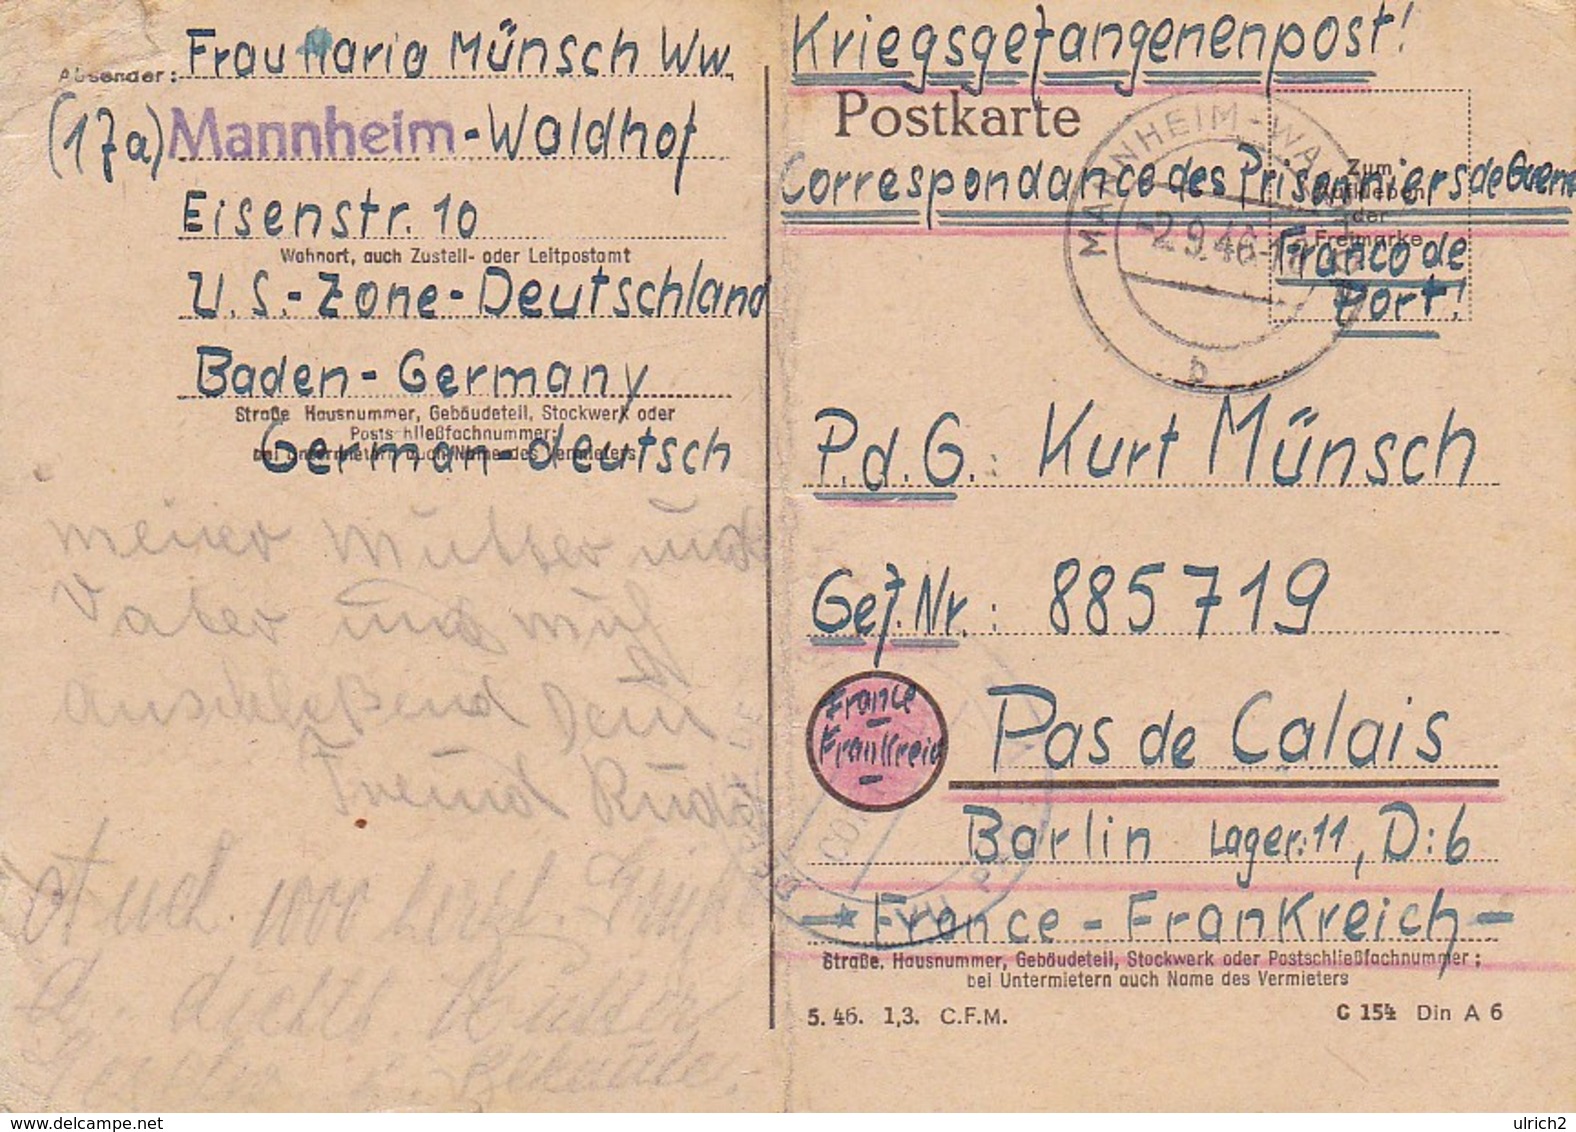 Absender: Frau Maria Münsch Ww.
(17a) Mannheim-Waldhof
Eisenstr. 10
Wohnort, auch Zustell- oder Leitpostamt
U.S.-Zone-Deutschland
Baden-Germany
Straße Hausnummer, Gebäudeteil, Stockwerk oder
Postschließfachnummer;
bei Untermietern auch Name des Vermieters
German-deutsch
meiner Mutter und
Vater und
anschließend Dein
Freund Rudi
Auch 1000 herzl.
Kriegsgefangenenpost!
Postkarte
Correspondance des Prisonniers de Guerre
Zum
Aufkleben
der
Freimarke
Franco de
Port!
MANNHEIM-WALDHOF
-2.9.46
b
P.d.G.: Kurt Münsch
Gef. Nr.: 885719
France
Frankreich
Pas de Calais
Barlin Lager: 11, D: 6
France - Frankreich -
Straße, Hausnummer, Gebäudeteil, Stockwerk oder Postschließfachnummer;
bei Untermietern auch Name des Vermieters
5. 46. 1,3. C.F.M.
C 154 Din A 6
ulrich2